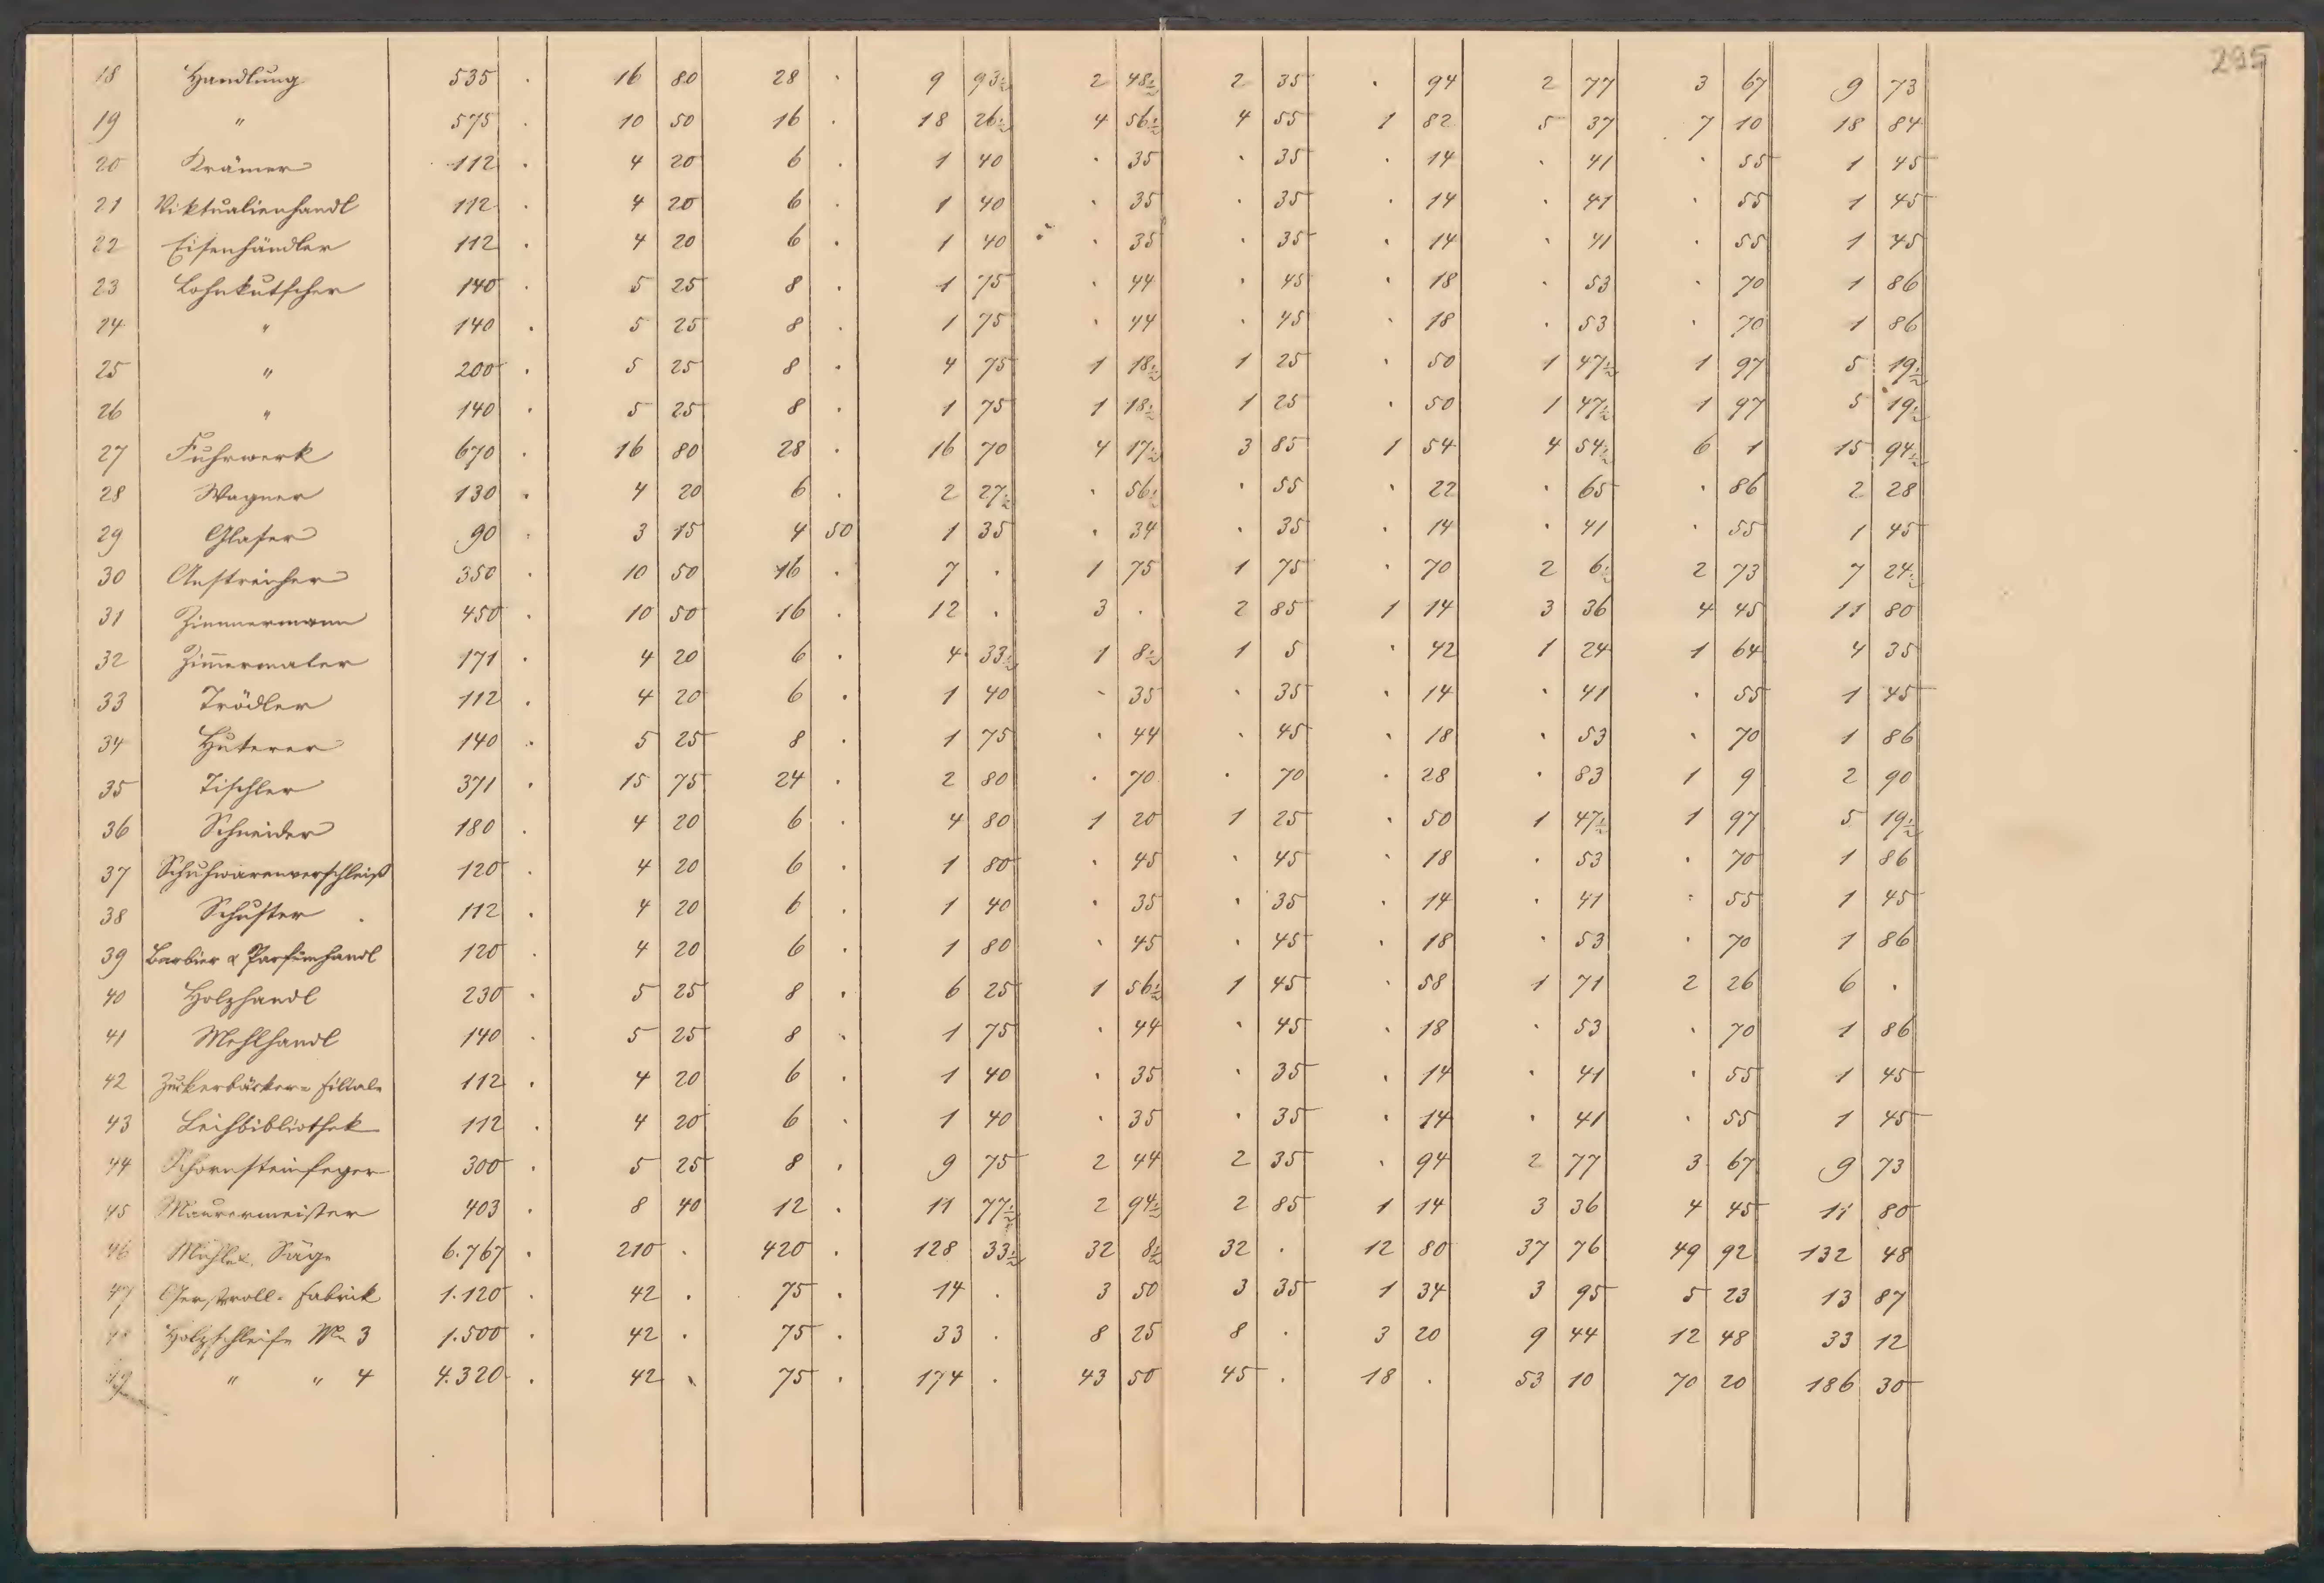 295
18 Handlung 535 . 16 80 28 . 9 93½ 2 48½ 2 35 . 94 2 77 3 67 9 73
19 " 575 . 10 50 16 . 18 26½ 4 56½ 4 55 1 82 5 37 7 10 18 84
20 Krämer 112 . 4 20 6 . 1 40 . 35 . 35 . 14 . 41 . 55 1 45
21 Viktualienhandl 112 . 4 20 6 . 1 40 . 35 . 35 . 14 . 41 . 55 1 45
22 Eisenhändler 112 . 4 20 6 . 1 40 . 35 . 35 . 14 . 41 . 55 1 45
23 Lohnkutscher 140 . 5 25 8 . 1 75 . 44 . 45 . 18 . 53 . 70 1 86
24 " 140 . 5 25 8 . 1 75 . 44 . 45 . 18 . 53 . 70 1 86
25 " 200 . 5 25 8 . 4 75 1 18½ 1 25 . 50 1 47½ 1 97 5 19½
26 " 140 . 5 25 8 . 1 75 1 18½ 1 25 . 50 1 47½ 1 97 5 19½
27 Fuhrwerk 670 . 16 80 28 . 16 70 4 17½ 3 85 1 54 4 54½ 6 1 15 94½
28 Wagner 130 . 4 20 6 . 2 27½ . 56½ . 55 . 22 . 65 . 86 2 28
29 Glaser 90 . 3 15 4 50 1 35 . 34 . 35 . 14 . 41 . 55 1 45
30 Anstreicher 350 . 10 50 16 . 7 . 1 75 1 75 . 70 2 6½ 2 73 7 24½
31 Zimmermann 450 . 10 50 16 . 12 . 3 . 2 85 1 14 3 36 4 45 11 80
32 Zim̄ermaler 171 . 4 20 6 . 4 33½ 1 8½ 1 5 . 42 1 24 1 64 4 35
33 Trödler 112 . 4 20 6 . 1 40 . 35 . 35 . 14 . 41 . 55 1 45
34 Huterer 140 . 5 25 8 . 1 75 . 44 . 45 . 18 . 53 . 70 1 86
35 Tischler 371 . 15 75 24 . 2 80 . 70 . 70 . 28 . 83 1 9 2 90
36 Schneider 180 . 4 20 6 . 4 80 1 20 1 25 . 50 1 47½ 1 97 5 19½
37 Schuhwarenverschleiß 120 . 4 20 6 . 1 80 . 45 . 45 . 18 . 53 . 70 1 86
38 Schuster . 112 . 4 20 6 . 1 40 . 35 . 35 . 14 . 41 . 55 1 45
39 Barbier & Parfümhandl 120 . 4 20 6 . 1 80 . 45 . 45 . 18 . 53 . 70 1 86
40 Holzhandl 230 . 5 25 8 . 6 25 1 56½ 1 45 . 58 1 71 2 26 6 .
41 Mehlhandl 140 . 5 25 8 . 1 75 . 44 . 45 . 18 . 53 . 70 1 86
42 Zuckerbäcker= Filiale 112 . 4 20 6 . 1 40 . 35 . 35 . 14 . 41 . 55 1 45
43 Leihbibliothek 112 . 4 20 6 . 1 40 . 35 . 35 . 14 . 41 . 55 1 45
44 Schornsteinfeger 300 . 5 25 8 . 9 75 2 44 2 35 . 94 2 77 3 67 9 73
45 Maurermeister 403 . 8 40 12 . 11 77½ 2 94½ 2 85 1 14 3 36 4 45 11 80
46 Mühle &. Säge 6.767 . 210 . 420 . 128 33½ 32 8½ 32 . 12 80 37 76 49 92 132 48
47 Gerstroll= Fabrik 1.120 . 42 . 75 . 14 . 3 50 3 35 1 34 3 95 5 23 13 87
Holzschleife No 3 1.500 . 42 . 75 . 33 . 8 25 8 . 3 20 9 44 12 48 33 12
49 " " 4 4.320 . 42 . 75 . 174 . 43 50 45 . 18 . 53 10 70 20 186 30